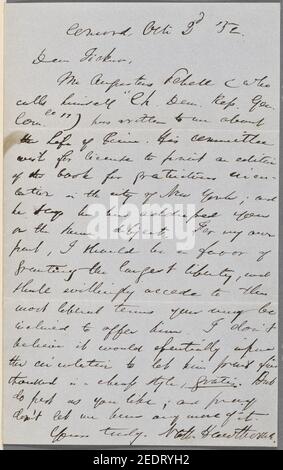 Concord Oct 3d '52.
Dear Ticknor,
Mr Augustus Schell (who
calls himself "Ch. Dem. Rep. Gen.
Com.") has written to me about
the Life of Pierce. His committee
wish for license to print an edition
of the book for gratuitous circu-
lation in the city of New York; and
he says he has addressed you
on the same subject. For my own
part, I should be in favor of
granting the largest liberty, and
shall willingly accede to the
most liberal terms you may be
inclined to offer him. I don't
believe it would essentially injure
the circulation to let him print five
thousand in a cheap style, gratis. But
do just as you like; and pray
don't let me hear any more of it
Yours truly, Nath Hawthorne.
alamy
Image ID: 2EDRYH2
www.alamy.com